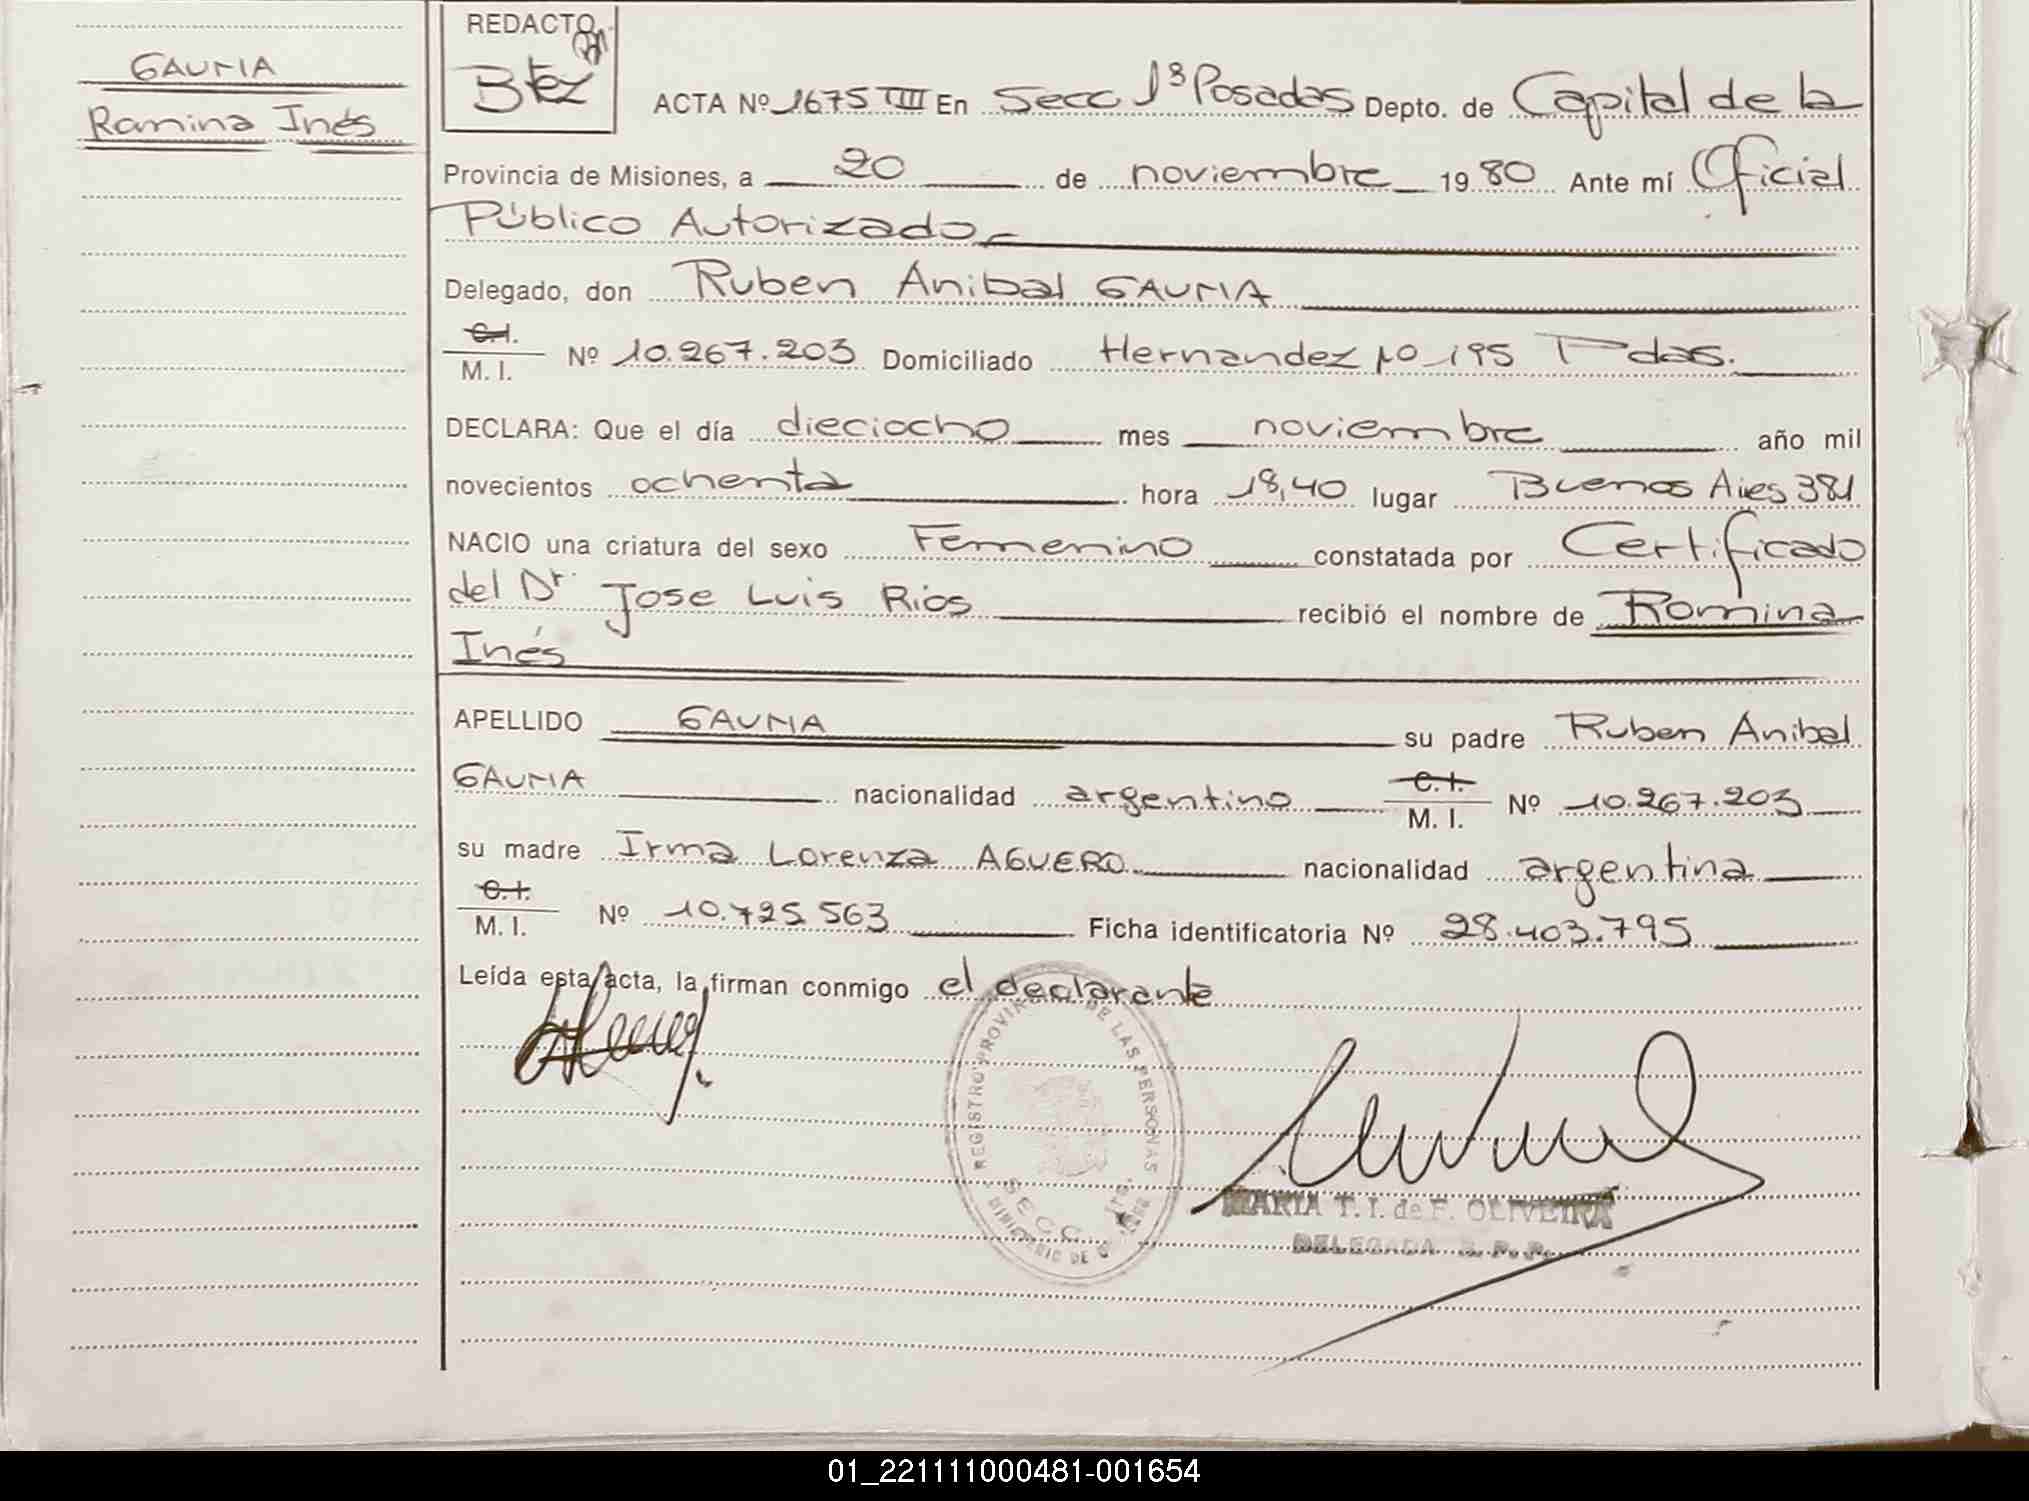 GAUNA
Romina Inés
REDACTO
Btez
ACTA Nº 1675 TIII En Secc 1ª Posadas Depto. de Capital de la
Provincia de Misiones, a 20 de noviembre 1980 Ante mí Oficial
Público Autorizado
Delegado, don Ruben Anibal GAUNA
C.I.
M. I. Nº 10.267.203 Domiciliado Hernandez Nº 195 Pdas.
DECLARA: Que el día dieciocho mes noviembre año mil
novecientos ochenta hora 18,40 lugar Buenos Aires 381
NACIO una criatura del sexo Femenino constatada por Certificado
del Dr. Jose Luis Rios recibió el nombre de Romina
Inés
APELLIDO GAUNA su padre Ruben Anibal
GAUNA nacionalidad argentino C.I. M. I. Nº 10.267.203
su madre Irma Lorenza AGUERO nacionalidad argentina
C.I.
M. I. Nº 10.725.563 Ficha identificatoria Nº 28.403.795
Leída esta acta, la firman conmigo el declarante
REGISTRO PROVINCIAL DE LAS PERSONAS
SECC. 1ª
MINISTERIO DE
MARIA T. I. de F. OLIVEIRA
DELEGADA R. P. P.
01_221111000481-001654